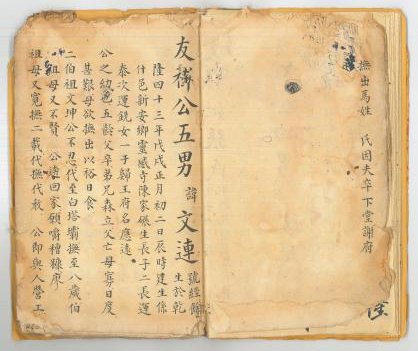 撫出馬姓　民因夫卒下堂謝府
友　公五男　諱　文連
號經
生於乾
隆四十三年戊戌正月初二日辰時建生係
什邑新安鄉靈威寺陳家碾生長子二長運
泰次運銑女一子歸王府名應遠
公之幼也五齡父卒弟兄森立父亡母寡日度
甚艱母欲撫出以裕日食
二伯祖文坤公不忍代至白塔壩撫至八歲伯
祖母又不賢　公遠回家願嚼糟糠
祖母又寬撫二載代撫代教　公即與人營工